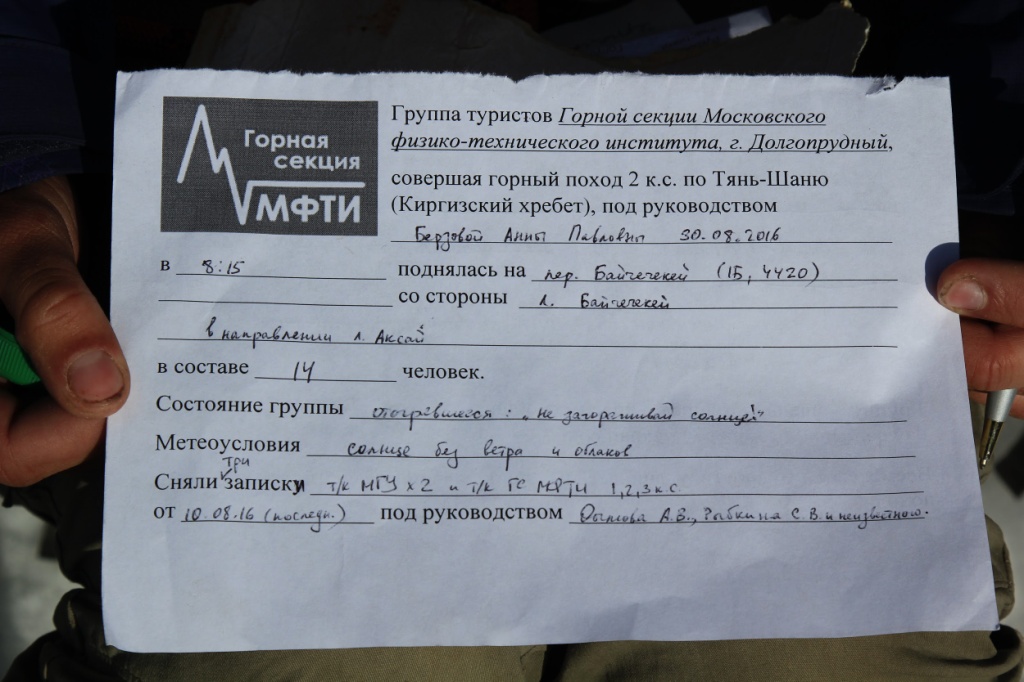 Горная
секция
МФТИ
Группа туристов Горной секции Московского
физико-технического института, г. Долгопрудный,
совершая горный поход 2 к.с. по Тянь-Шаню
(Киргизский хребет), под руководством
Берзовой Анны Павловны 30.08.2016
в 8:15 поднялась на пер. Байчечекей (1Б, 4420)
со стороны л. Байчечекей
в направлении л. Аксай
в составе 14 человек.
Состояние группы отогревшееся: „не загораживай солнце!"
Метеоусловия солнце без ветра и облаков
Сняли три записки т/к МГУ x 2 и т/к ГС МФТИ 1,2,3 к.с.
от 10.08.16 (последн.) под руководством А.В., Рыбкина С.В. и неизвестного.